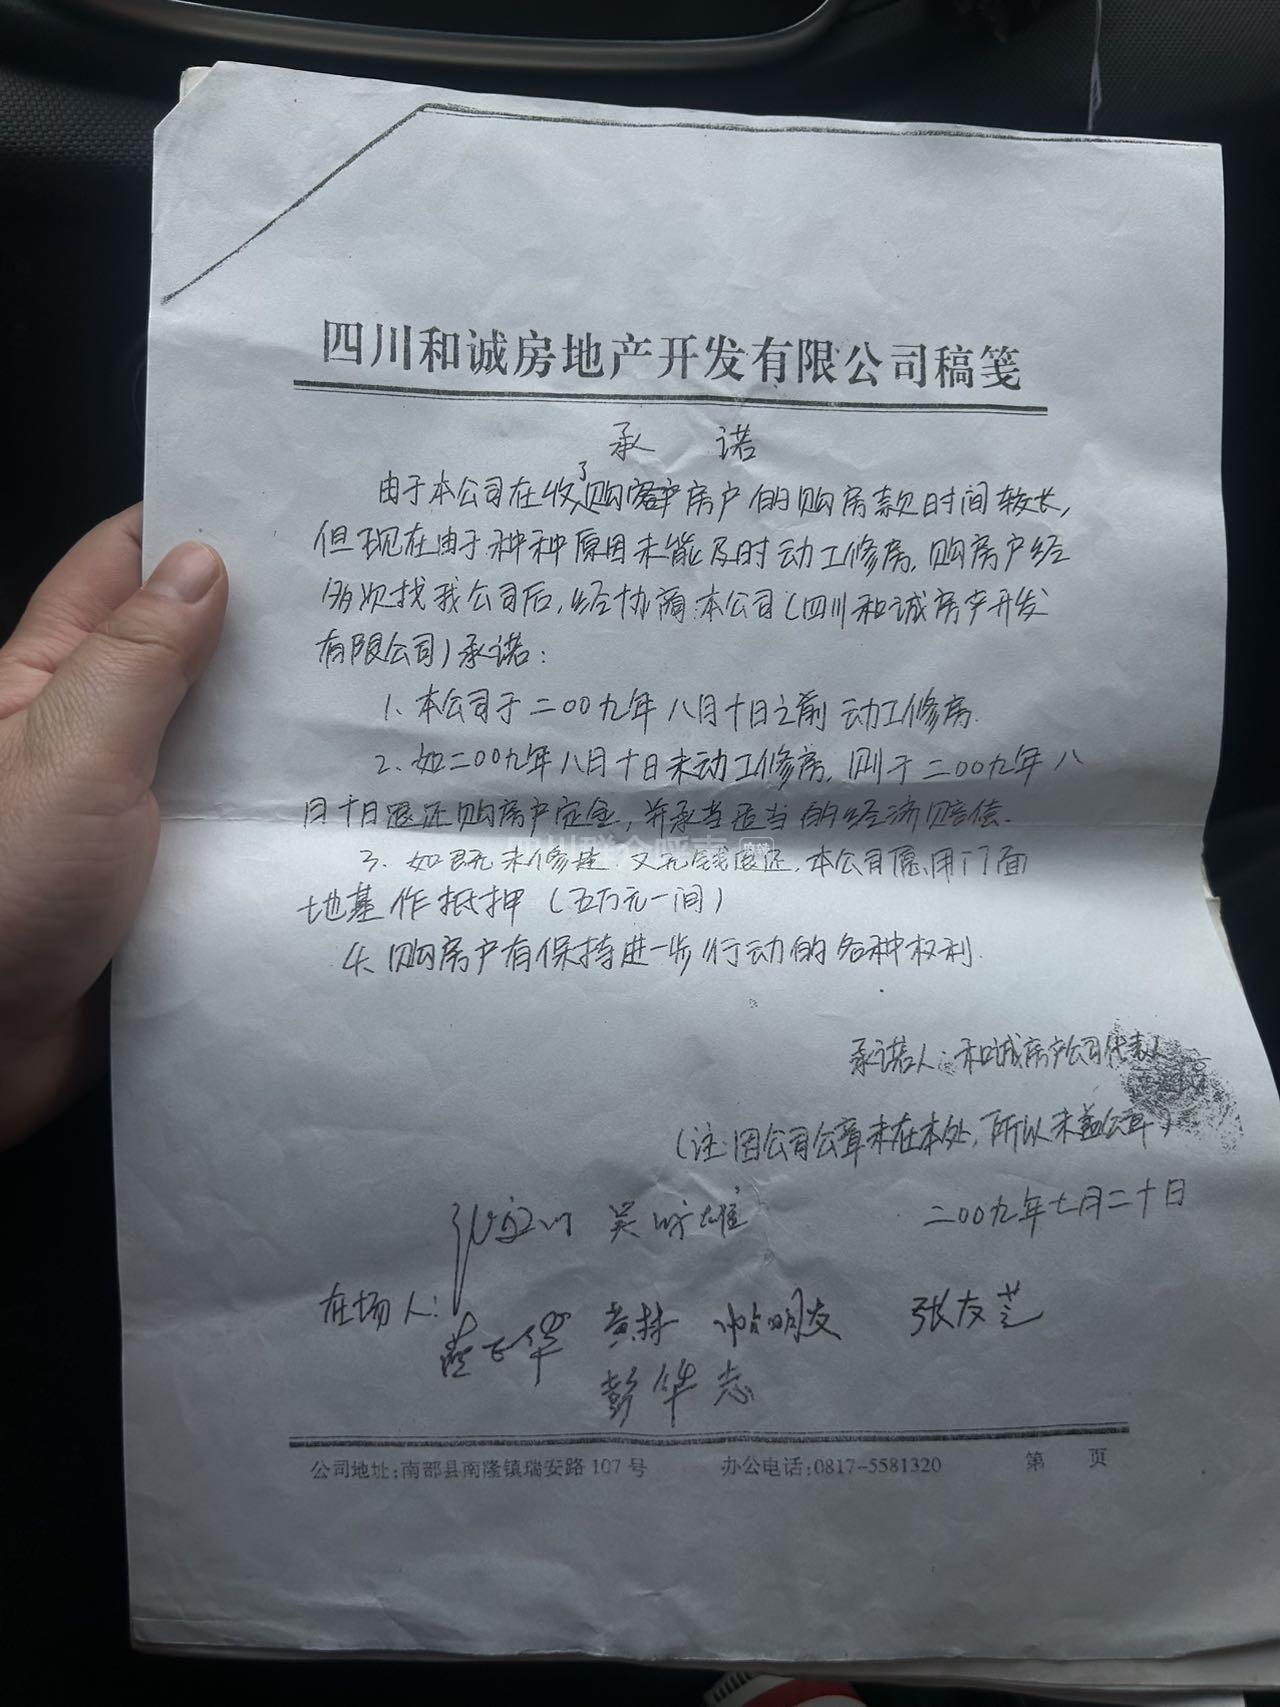 四川和诚房地产开发有限公司稿笺
承 诺
由于本公司在收了购房户的购房款时间较长,
但现在由于种种原因未能及时动工修房,购房户经
多次找我公司后,经协商:本公司(四川和诚房产开发
有限公司)承诺:
1、本公司于二00九年八月十日之前动工修房.
2、如二00九年八月十日未动工修房,则于二00九年八
月十日退还购房户定金,并承当适当的经济赔偿.
3、如既未修建又无钱退还,本公司愿用门面
地基作抵押(五万元一间)
4、购房户有保持进一步行动的各种权利.
承诺人:和诚房产公司代表人
(注:因公司公章未在本处,所以未盖公章)
二00九年七月二十日
在场人:
黄林 明友 张友芝
彭华志
公司地址:南部县南隆镇瑞安路107号 办公电话:0817-5581320 第 页